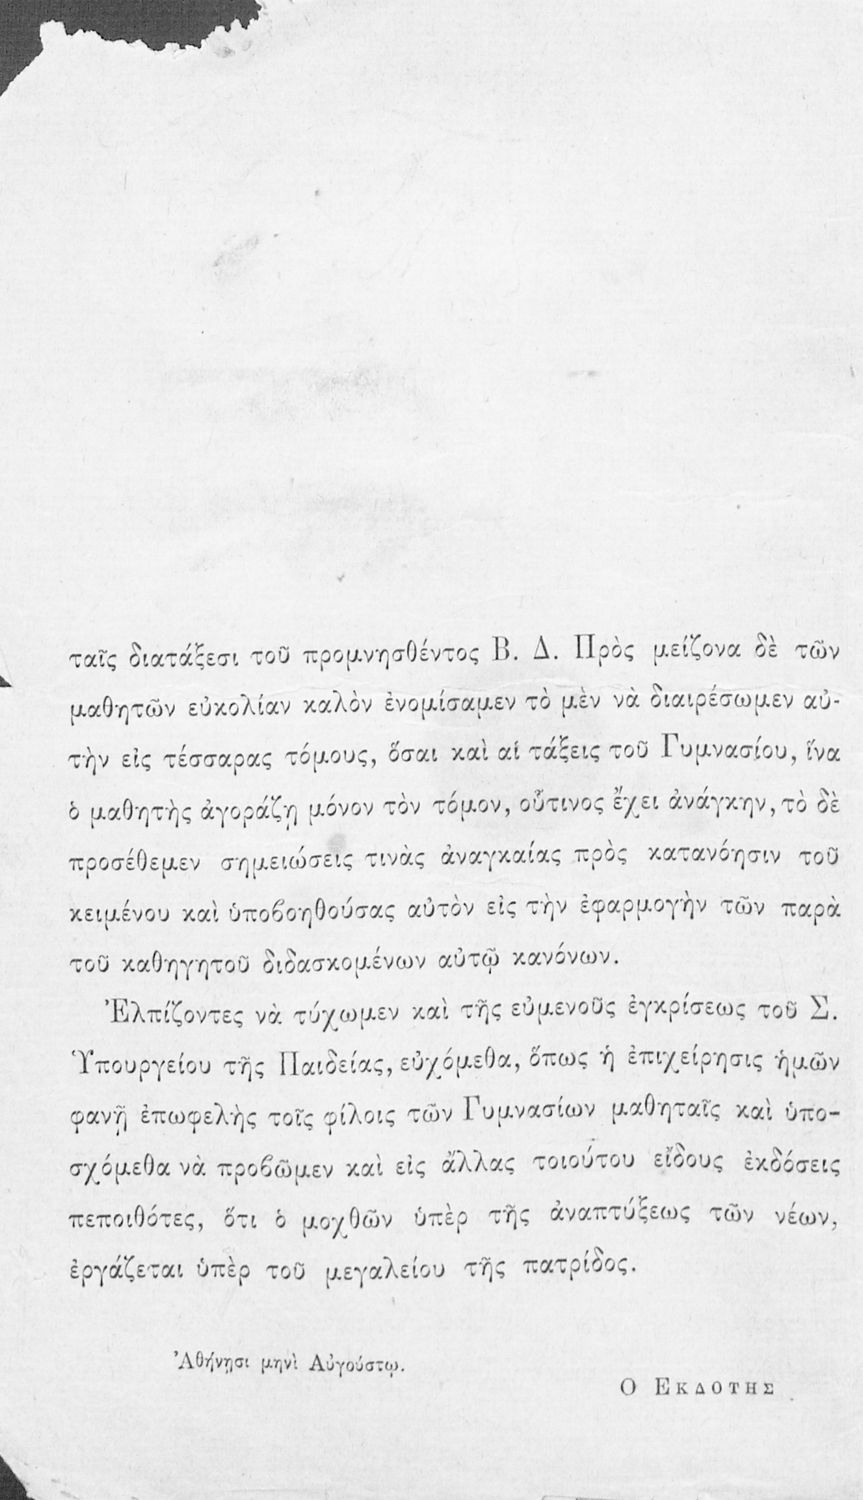 ταῖς διατάξεσι τοῦ προμνησθέντος Β. Δ. Πρὸς μείζονα δὲ τῶν
μαθητῶν εὐκολίαν καλὸν ἐνομίσαμεν τὸ μὲν νὰ διαιρέσωμεν αὐ-
τὴν εἰς τέσσαρας τόμους, ὅσαι καὶ αἱ τάξεις τοῦ Γυμνασίου, ἵνα
ὁ μαθητὴς ἀγοράζῃ μόνον τὸν τόμον, οὗτινος ἔχει ἀνάγκην, τὸ δὲ
προσέθεμεν σημειώσεις τινὰς ἀναγκαίας πρὸς κατανόησιν τοῦ
κειμένου καὶ ὑποβοηθούσας αὐτὸν εἰς τὴν ἐφαρμογὴν τῶν παρὰ
τοῦ καθηγητοῦ διδασκομένων αὐτῷ κανόνων.
Ἐλπίζοντες νὰ τύχωμεν καὶ τῆς εὐμενοῦς ἐγκρίσεως τοῦ Σ.
Ὑπουργείου τῆς Παιδείας, εὐχόμεθα, ὅπως ἡ ἐπιχείρησις ἡμῶν
φανῇ ἐπωφελὴς τοῖς φίλοις τῶν Γυμνασίων μαθηταῖς καὶ ὑπο-
σχόμεθα νὰ προβῶμεν καὶ εἰς ἄλλας τοιούτου εἴδους ἐκδόσεις
πεποιθότες, ὅτι ὁ μοχθῶν ὑπὲρ τῆς ἀναπτύξεως τῶν νέων,
ἐργάζεται ὑπὲρ τοῦ μεγαλείου τῆς πατρίδος.
Ἀθήνῃσι μηνὶ Αὐγούστῳ.
Ο ΕΚΔΟΤΗΣ